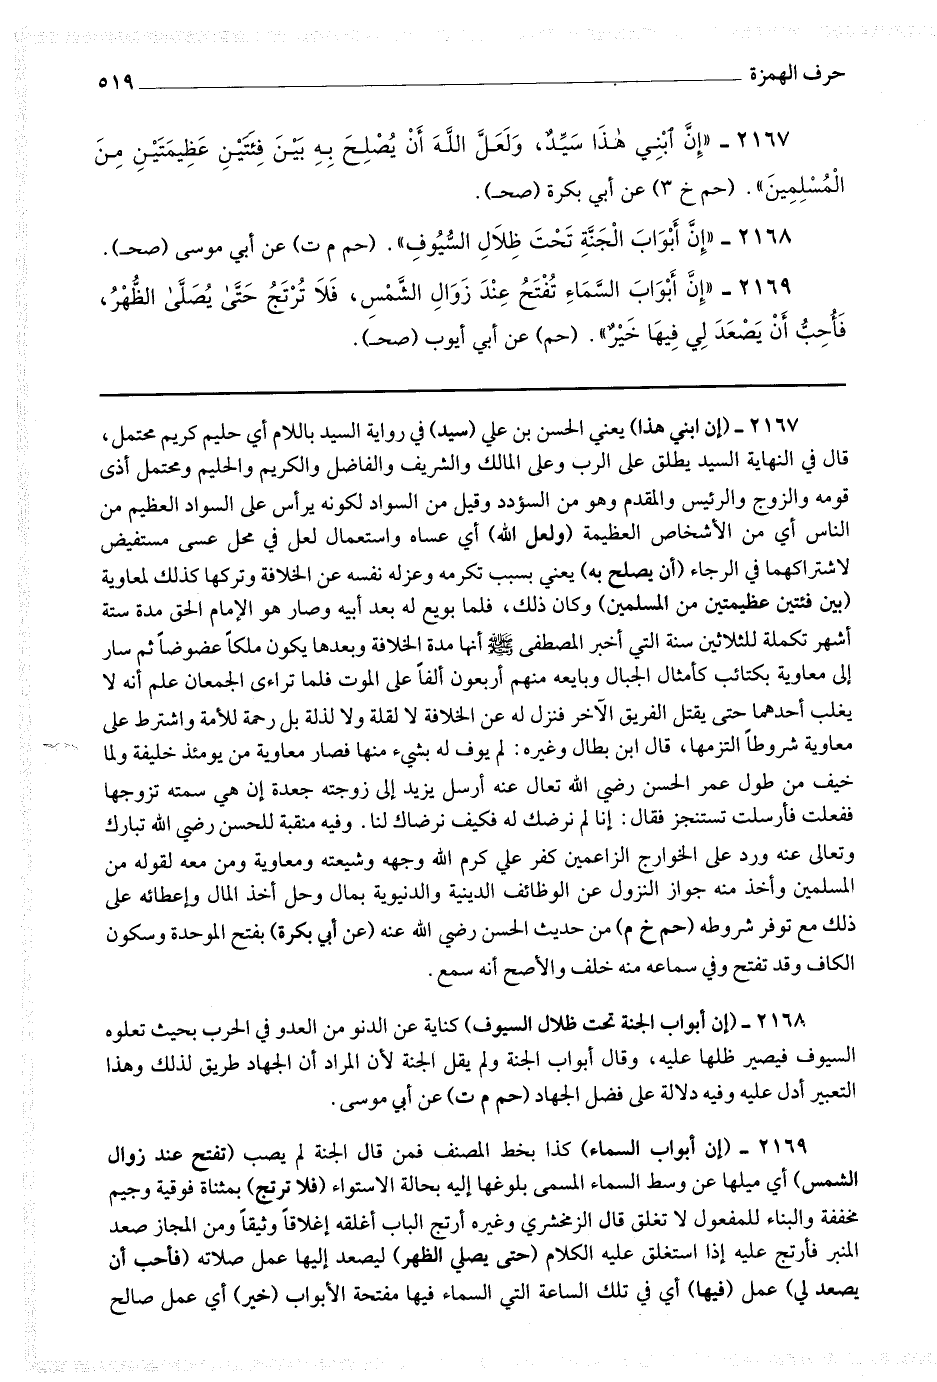 حرف الهمزة ٥١٩
٢١٦٧ ـ «إِنَّ ٱبْنِي هٰذَا سَيِّدٌ، وَلَعَلَّ اللَّهَ أَنْ يُصْلِحَ بِهِ بَيْنَ فِئَتَيْنِ عَظِيمَتَيْنِ مِنَ
الْمُسْلِمِينَ». (حم خ ٣) عن أبي بكرة (صحـ).
٢١٦٨ ـ «إِنَّ أَبْوَابَ الْجَنَّةِ تَحْتَ ظِلَالِ السُّيُوفِ». (حم م ت) عن أبي موسى (صحـ).
٢١٦٩ ـ «إِنَّ أَبْوَابَ السَّمَاءِ تُفْتَحُ عِنْدَ زَوَالِ الشَّمْسِ، فَلَا تُرْتَجُ حَتَّىٰ يُصَلَّىٰ الظُّهْرُ،
فَأُحِبُّ أَنْ يَصْعَدَ لِي فِيهَا خَيْرٌ». (حم) عن أبي أيوب (صحـ).
٢١٦٧ ـ (إن ابني هذا) يعني الحسن بن علي (سيد) في رواية السيد باللام أي حليم كريم محتمل،
قال في النهاية السيد يطلق على الرب وعلى المالك والشريف والفاضل والكريم والحليم ومحتمل أذى
قومه والزوج والرئيس والمقدم وهو من السؤدد وقيل من السواد لكونه يرأس على السواد العظيم من
الناس أي من الأشخاص العظيمة (ولعل الله) أي عساه واستعمال لعل في محل عسى مستفيض
لاشتراكهما في الرجاء (أن يصلح به) يعني بسبب تكرمه وعزله نفسه عن الخلافة وتركها كذلك لمعاوية
(بين فئتين عظيمتين من المسلمين) وكان ذلك، فلما بويع له بعد أبيه وصار هو الإمام الحق مدة ستة
أشهر تكملة للثلاثين سنة التي أخبر المصطفى ﷺ أنها مدة الخلافة وبعدها يكون ملكاً عضوضاً ثم سار
إلى معاوية بكتائب كأمثال الجبال وبايعه منهم أربعون ألفاً على الموت فلما تراءى الجمعان علم أنه لا
يغلب أحدهما حتى يقتل الفريق الآخر فنزل له عن الخلافة لا لقلة ولا لذلة بل رحمة للأمة واشترط على
معاوية شروطاً التزمها، قال ابن بطال وغيره: لم يوف له بشيء منها فصار معاوية من يومئذ خليفة ولما
خيف من طول عمر الحسن رضي الله تعال عنه أرسل يزيد إلى زوجته جعدة إن هي سمته تزوجها
ففعلت فأرسلت تستنجز فقال: إنا لم نرضك له فكيف نرضاك لنا. وفيه منقبة للحسن رضي الله تبارك
وتعالى عنه ورد على الخوارج الزاعمين كفر علي كرم الله وجهه وشيعته ومعاوية ومن معه لقوله من
المسلمين وأخذ منه جواز النزول عن الوظائف الدينية والدنيوية بمال وحل أخذ المال وإعطائه على
ذلك مع توفر شروطه (حم خ م) من حديث الحسن رضي الله عنه (عن أبي بكرة) بفتح الموحدة وسكون
الكاف وقد تفتح وفي سماعه منه خلف والأصح أنه سمع.
٢١٦٨ ـ (إن أبواب الجنة تحت ظلال السيوف) كناية عن الدنو من العدو في الحرب بحيث تعلوه
السيوف فيصير ظلها عليه، وقال أبواب الجنة ولم يقل الجنة لأن المراد أن الجهاد طريق لذلك وهذا
التعبير أدل عليه وفيه دلالة على فضل الجهاد (حم م ت) عن أبي موسى.
٢١٦٩ ـ (إن أبواب السماء) كذا بخط المصنف فمن قال الجنة لم يصب (تفتح عند زوال
الشمس) أي ميلها عن وسط السماء المسمى بلوغها إليه بحالة الاستواء (فلا ترتج) بمثناة فوقية وجيم
مخففة والبناء للمفعول لا تغلق قال الزمخشري وغيره أرتج الباب أغلقه إغلاقاً وثيقاً ومن المجاز صعد
المنبر فأرتج عليه إذا استغلق عليه الكلام (حتى يصلي الظهر) ليصعد إليها عمل صلاته (فأحب أن
يصعد لي) عمل (فيها) أي في تلك الساعة التي السماء فيها مفتحة الأبواب (خير) أي عمل صالح